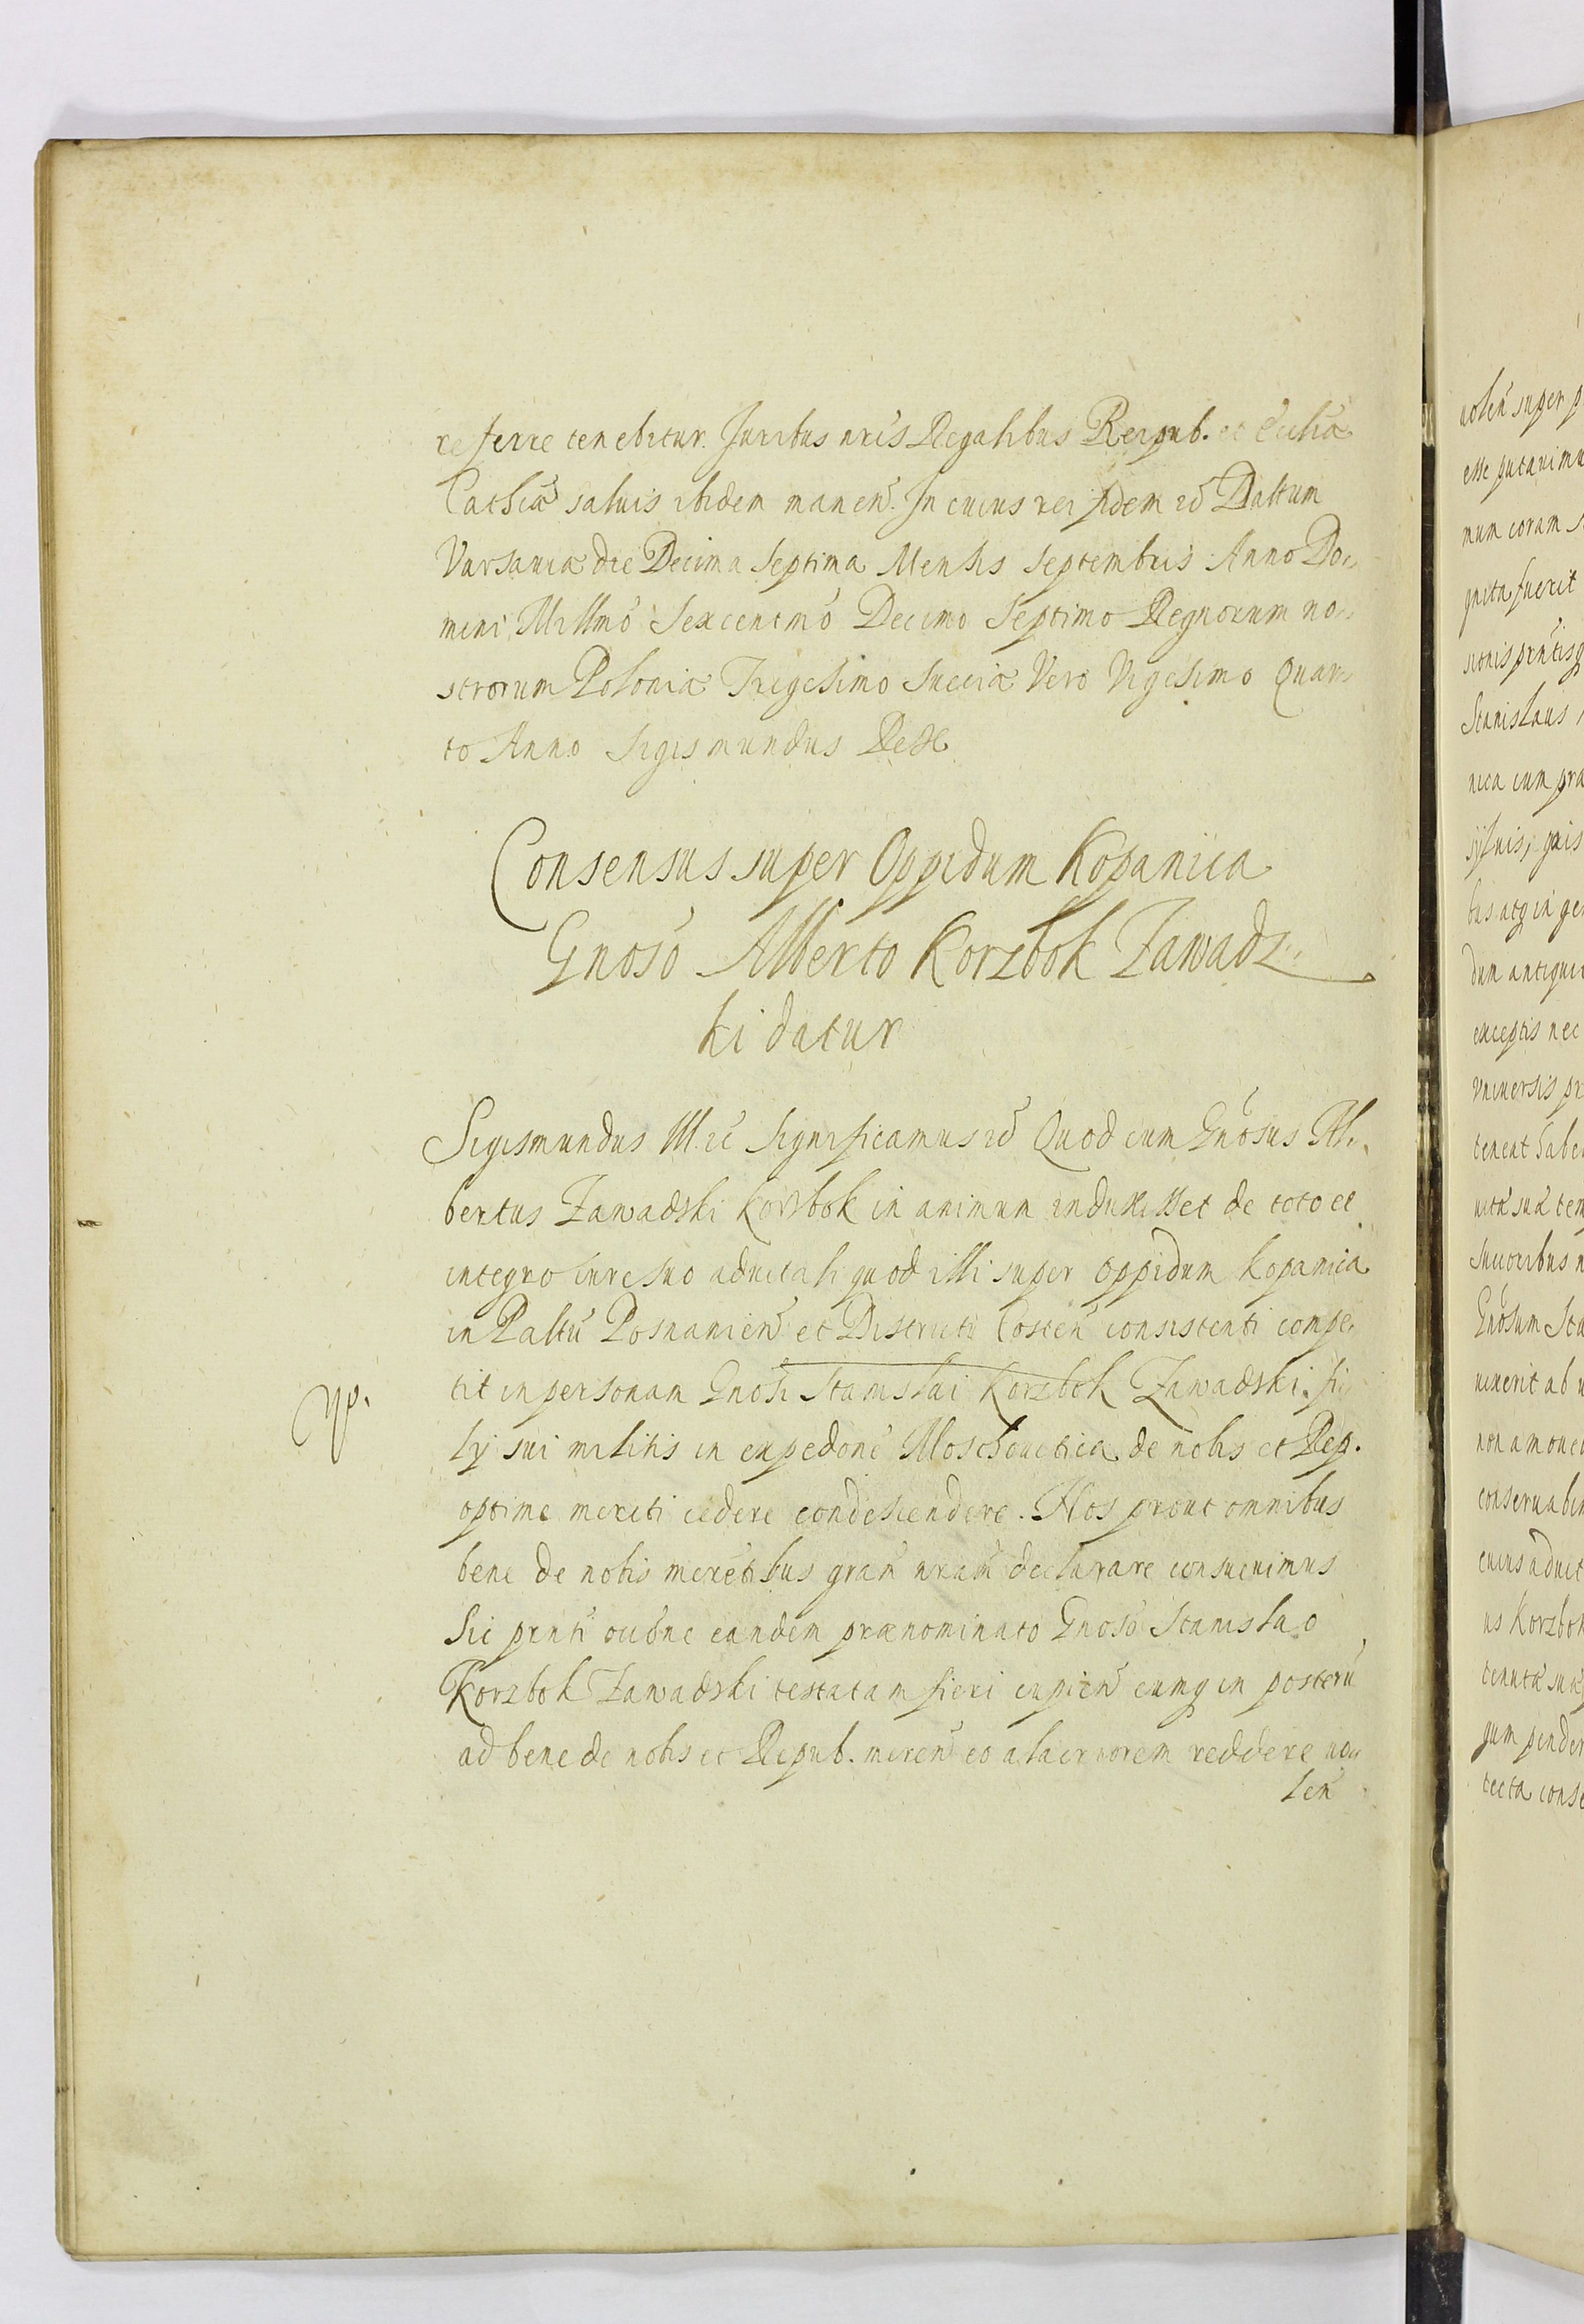 referre tenebitur. Juribus nris Regalibus Reipub. et Eccliae
Catholicae saluis ibidem manen. In cuius rei fidem etc Dattum
Varsauiae die Decima Septima Mensis Septembris Anno Do-
mini Millmo Sexcentmo Decimo Septimo Regnorum no-
strorum Poloniae Trigesimo Sueciae Vero Vigesimo Quar-
to Anno Sigismundus Rex
Consensus super Oppidum Kopanica
Gnoso Alberto Korzbok Zawadz-
ki datur
Sigismundus III. etc Significamus etc Quod cum Gnosus Al-
bertus Zawadski Korzbok in animum induxisset de toto et
integro iure suo aduitali quod illi super oppidum Kopanica
in Paltu Posnanien et Districtu Costen consistenti compe-
tit in personam Gnosi Stanislai Korzbok Zawadski fi-
lij sui militis in expedone Moschouitica de nobis et Rep.
optime meriti cedere condescendere. Nos prout omnibus
bene de nobis meretibus gram nram declarare consueuimus
Sic prnti occone eandem praenominato Gnoso Stanislao
Korzbok Zawadski testatam fieri cupien eumq in posteru
ad bene de nobis et Repub. meren eo alacriorem reddere uo-
len
uolen super p
esse putauimu
mum coram
quita fuerit
sitnis prntisq
Stanislaus
nica cum pra
syluis,
bus atq in gen
dum antiqui
exceptis nec
vniuersis pr
teneat habe
uitae suae tem
Successoribus n
Gnosum Sta
uixerit ab u
non amoue
conseruabim
cuius aduit
us Korzbok
tenutae suae
gum penden
tecta conse